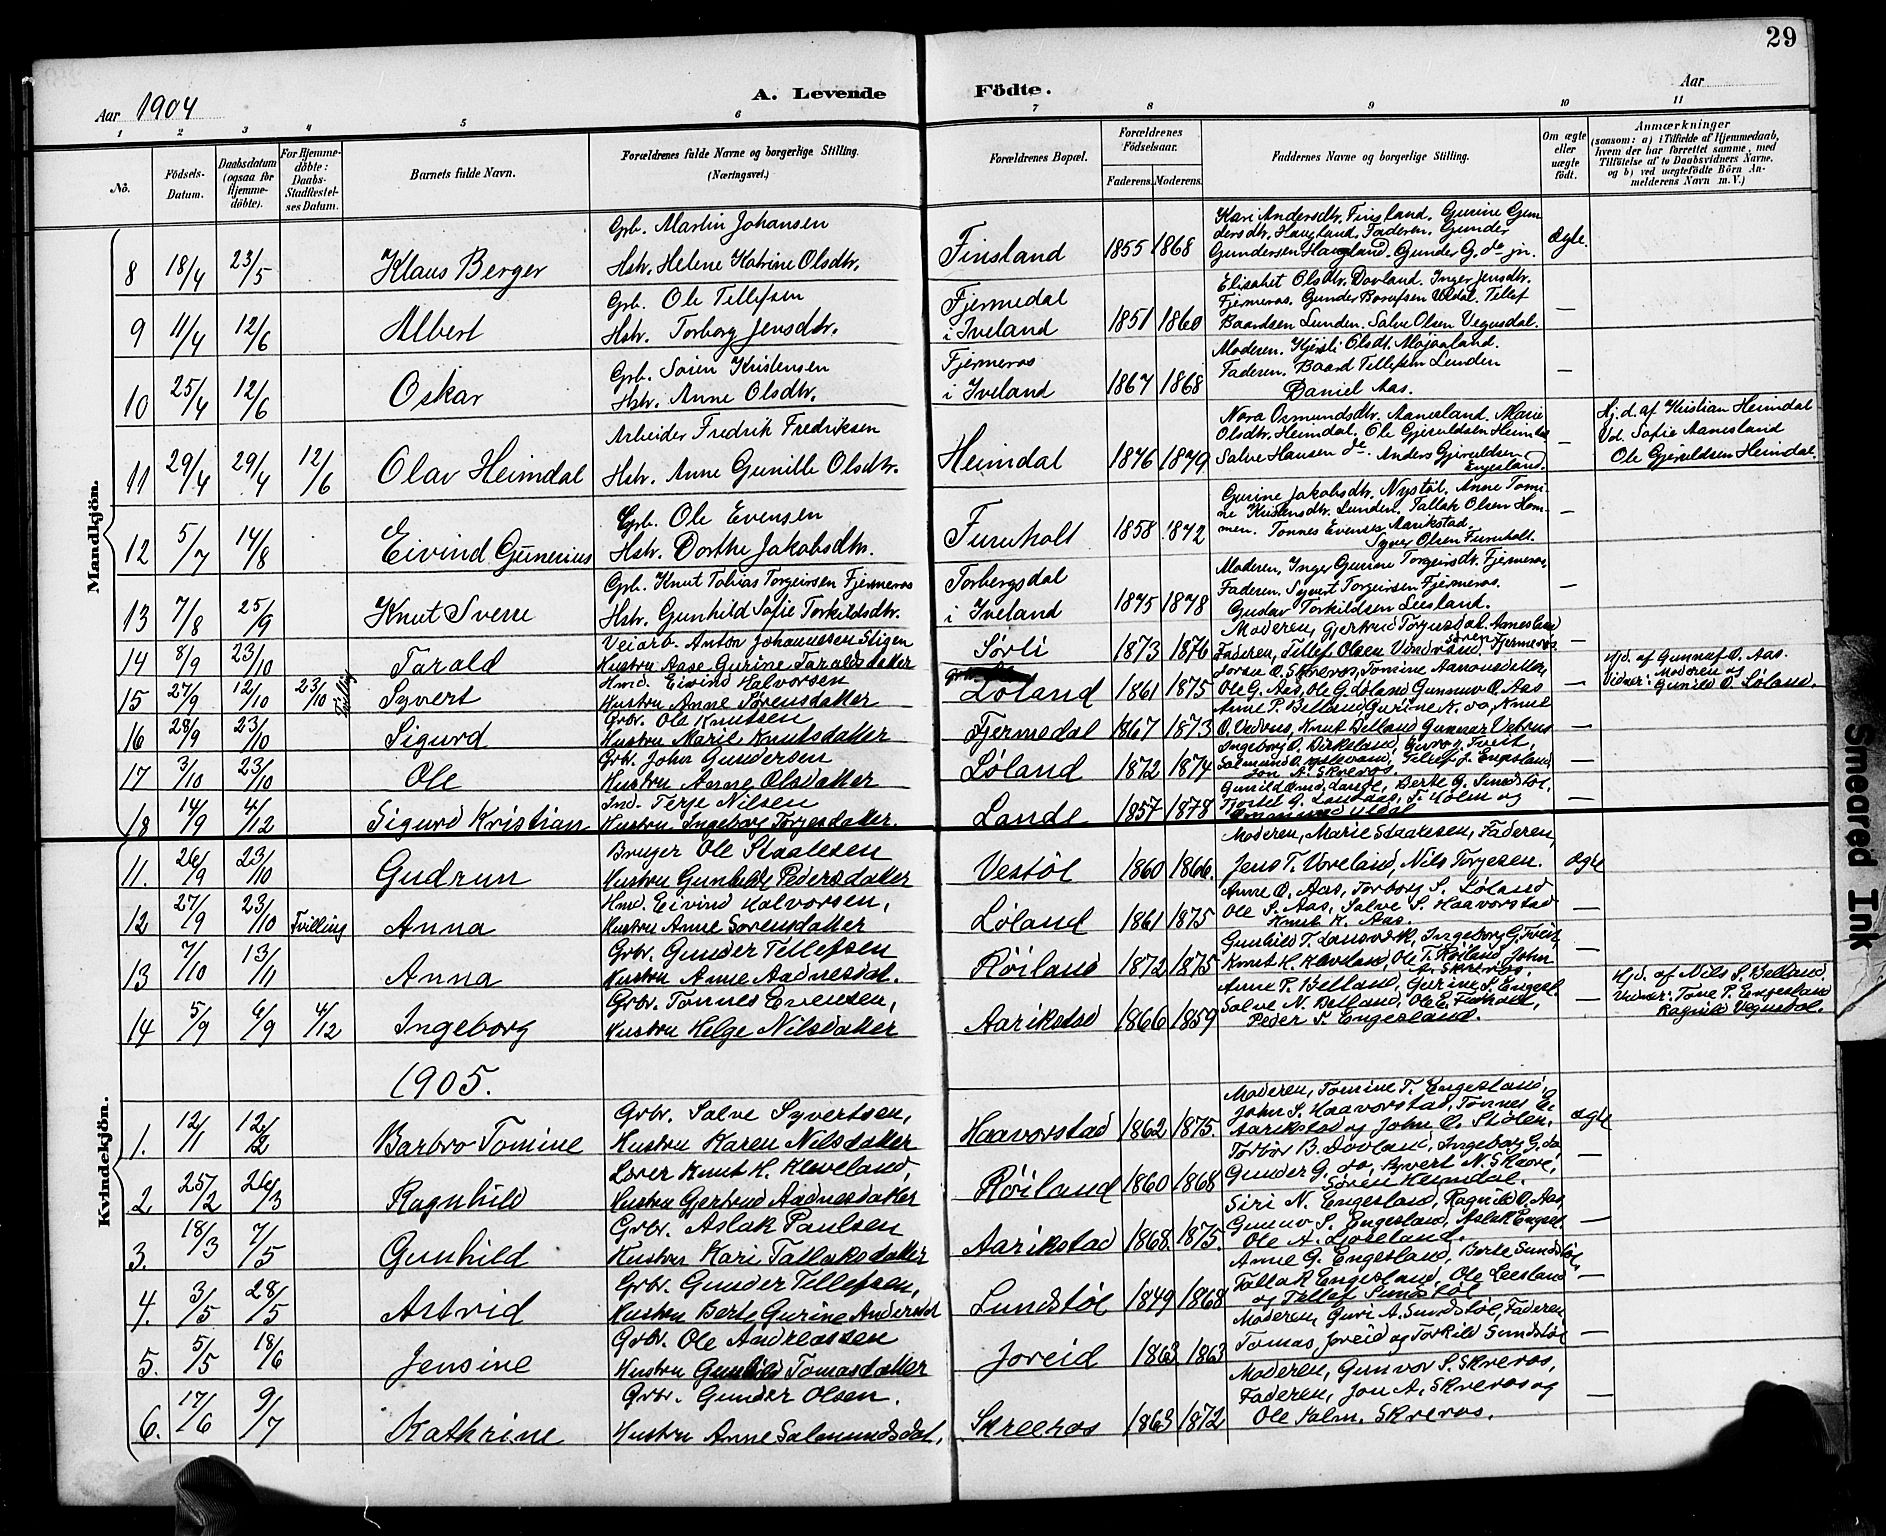 29
Aar 1904
A. Levende Födte.
Aar
1 2 3 4 5 6 7 8 9 10 11
No.
Födsels-Datum.
Daabsdatum (ogsaa for Hjemme-döbte).
For Hjemme-döbte: Daabs-Stadfæstel-ses Datum.
Barnets fulde Navn.
Forældrenes fulde Navne og borgerlige Stilling. (Næringsvei.)
Forældrenes Bopæl.
Forældrenes Födselsaar.
Faderens. Moderens.
Faddernes Navne og borgerlige Stilling.
Om ægte eller uægte födt.
Anmærkninger
(saasom: a) i Tilfælde af Hjemmedaab, hvem der har forrettet samme, med Tilföielse af to Daabsvidners Navne, og b) ved uægtefödte Börn An-melderens Navn m. V.)
Mandkjön.
8 18/4 23/5 Klaus Berger
Grb. Martin Johansen
Hstr. Helene Katrine Olsdtr.
Finsland 1855 1868
Kari Andersdtr. Finsland. Gurine Gun
dersdtr. Haugland. Faderen. Gunder
Gundersen Haugland. Gunder G. do jr.
Ægte.
9 11/4 12/6 Albert
Grb. Ole Tellefsen
Hstr. Torborg Jensdtr.
Fjermedal
i Iveland 1851 1860
Elisabet Olsdtr. Dovland. Inger Jensdtr.
Fjermeros. Gunder Tellef
Baardsen Lunden. Salve Olsen Vegusdal.
—
10 25/4 12/6 Oskar
Grb. Sören Kristensen
Hstr. Anne Olsdtr.
Fjermeros
i Iveland 1867 1868
Moderen. Olsdt.
Faderen. Baard Tellefsen Lunden
Daniel Aas.
—
11 29/4 29/4 12/6 Olav Heimdal
Arbeider Fredrik Fredriksen
Hstr. Anne Gunille Olsdtr.
Heimdal 1876 1879
Nora Osmundsdtr. Aanesland. Marie
Olsdtr. Heimdal. Ole Gjeruldsen Heimdal
Salve Hansen do. Anders Gjeruldsen
Engesland.
—
Hj. d. af Kristian Heimdal
Vid. Sofie Aanesland
Ole Gjeruldsen Heimdal.
12 5/7 14/8 Eivind Gunerius
Grb. Ole Evensen
Hstr. Dorthe Jakobsdtr.
Furuholt 1858 1872
Gurine Jakobsdtr. Nystöl. Anne Tomi-
ne Kristensdtr. Lunden. Tallak Olsen Hom-
men. Tonnes Evensen Aarikstad.
Syver Olsen Furuholt.
—
13 7/8 25/9 Knut Sverre
Grb. Knut Tobias Torgeirsen Fjermeros
Hstr. Gunhild Sofie Torkildsdtr.
Torbergsdal
i Iveland 1875 1878
Moderen, Inger Gurine Torgeirsdtr. Fjermeros,
Faderen. Syvert Torgeirsen Fjermeros.
Gustav Torkildsen Leesland.
—
14 8/9 23/10 Tarald
Veiarb. Anton Johannesen Stigen
Hustru Aase Gurine Taraldsdatter
Sørli 1873 1876
Moderen, Gjertrud Aanesland
Faderen, Tellef Olsen Fjermeros
—
15 27/9 12/10 23/10 Tvilling Syvert
Hmd. Eivind Halvorsen
Hustru Anne Sørensdatter
Løland 1861 1875
Ole G. Aas, Ole G. Løland Gunnuv O. Aas
—
Hjd. af Gunnuf O. Aas.
Vidner: Moderen og
Gunild O. Løland.
16 28/9 23/10 Sigurd
Grbr. Ole Knutsen
Hustru Marie Knutsdatter
Fjermedal 1867 1873
Anne P. Belland, Gurine N. do, Knut
O. Vedvus, Knut Belland Gunnar
—
17 3/10 23/10 Ole
Grb. John Gundersen
Hustru Anne Olsdatter
Løland 1872 1874
Ingeborg O. Birkeland, Guro J. Tveit,
Jon A. Skreros
—
18 14/9 4/12 Sigurd Kristian
Ind. Terje Nilsen
Hustru Ingeborg Torjesdatter.
Lande 1857 1878
Berte G. Sundstøl,
F. Holm og
—
Kvindekjön.
11. 26/9 23/10 Gudrun
Bruger Ole Staalesen
Hustru Gunhild Pedersdatter
Vestøl 1860 1866.
Moderen, Marie Staalesen, Faderen,
Jens T. Uveland, Nils Torjesen.
ægte
12 27/9 23/10 Tvilling Anna
Hmd. Eivind Halvorsen,
Hustru Anne Sørensdatter
Løland 1861 1875
Anne O. Aas, Torborg S. Løland
Ole S. Aas, Salve S. Haavorstad
Knut K. Aas.
—
13 7/10 13/11 Anna
Grbr. Gunder Tellefsen
Hustru Anne Aadnesdat.
Røiland 1872 1875
Gunhild T. Ingeborg G. Tveit,
Knut H. Kleveland, Ole T. Røiland, John
A. Skreros.
—
14 5/9 6/9 4/12 Ingeborg
Grbr. Tønnes Evensen,
Hustru Helge Nilsdatter
Aarikstad 1866 1859
Anne P. Belland, Gurine S. Engesl.
Salve N. Belland, Ole E.
Peder T. Engesland.
—
Hjd. af Nils S. Belland,
Vidner: Tone P. Engesland
Ragnild Vegusdal.
1905.
1. 12/1 12/2 Barbro Tomine
Grbr. Salve Syvertsen,
Hustru Karen Nilsdatter
Haavorstad 1862 1875.
Moderen, Tomine T. Engesland,
John S. Haavorstad, Tønnes E.
Aarikstad og John O. Stølen.
ægte
2 25/2 26/3 Ragnhild
Lærer Knut H. Kleveland,
Hustru Gjertrud Aadnesdatter
Røiland 1860 1868
Torbor B. Dovland, Ingeborg G. do
Gunder G. do, Syvert N. Skaare,
Søren Heimdal.
—
3. 18/3 7/5 Gunhild
Grbr. Aslak Paulsen
Hustru Kari Tallaksdatter
Aarikstad 1868. 1875.
Siri N. Engesland, Ragnild O. Aas,
Gunnuv S. Engesland, Aslak Engesl.
Ole A. Ljoseland.
—
4. 3/5 28/5 Astrid
Grbr. Gunder Tellefsen,
Hustru Berte Gurine Andersdat
Lundstøl 1849 1868
Anne G. Engesland, Berte Sundstøl,
Tallak Engesland, Ole Leesland
og Tellef Sundstøl
—
5. 5/5 18/6 Jensine
Grbr. Ole Andreassen
Hustru Gunhild Tomasdatter
Joreid 1863 1863
Moderen, Guri A. Sundstøl, Faderen
Tomas, Joreid og Torkild Sundstøl
—
6. 17/6 9/7 Kathrine
Grbr. Gunder Olsen.
Hustru Anne Salmundsdat.
Skreeros 1863 1872
Moderen, Gunvor S. Skreros,
Faderen, Jon A. Skreros og
Ole Kalm. Skreros.
—
Smeared Ink